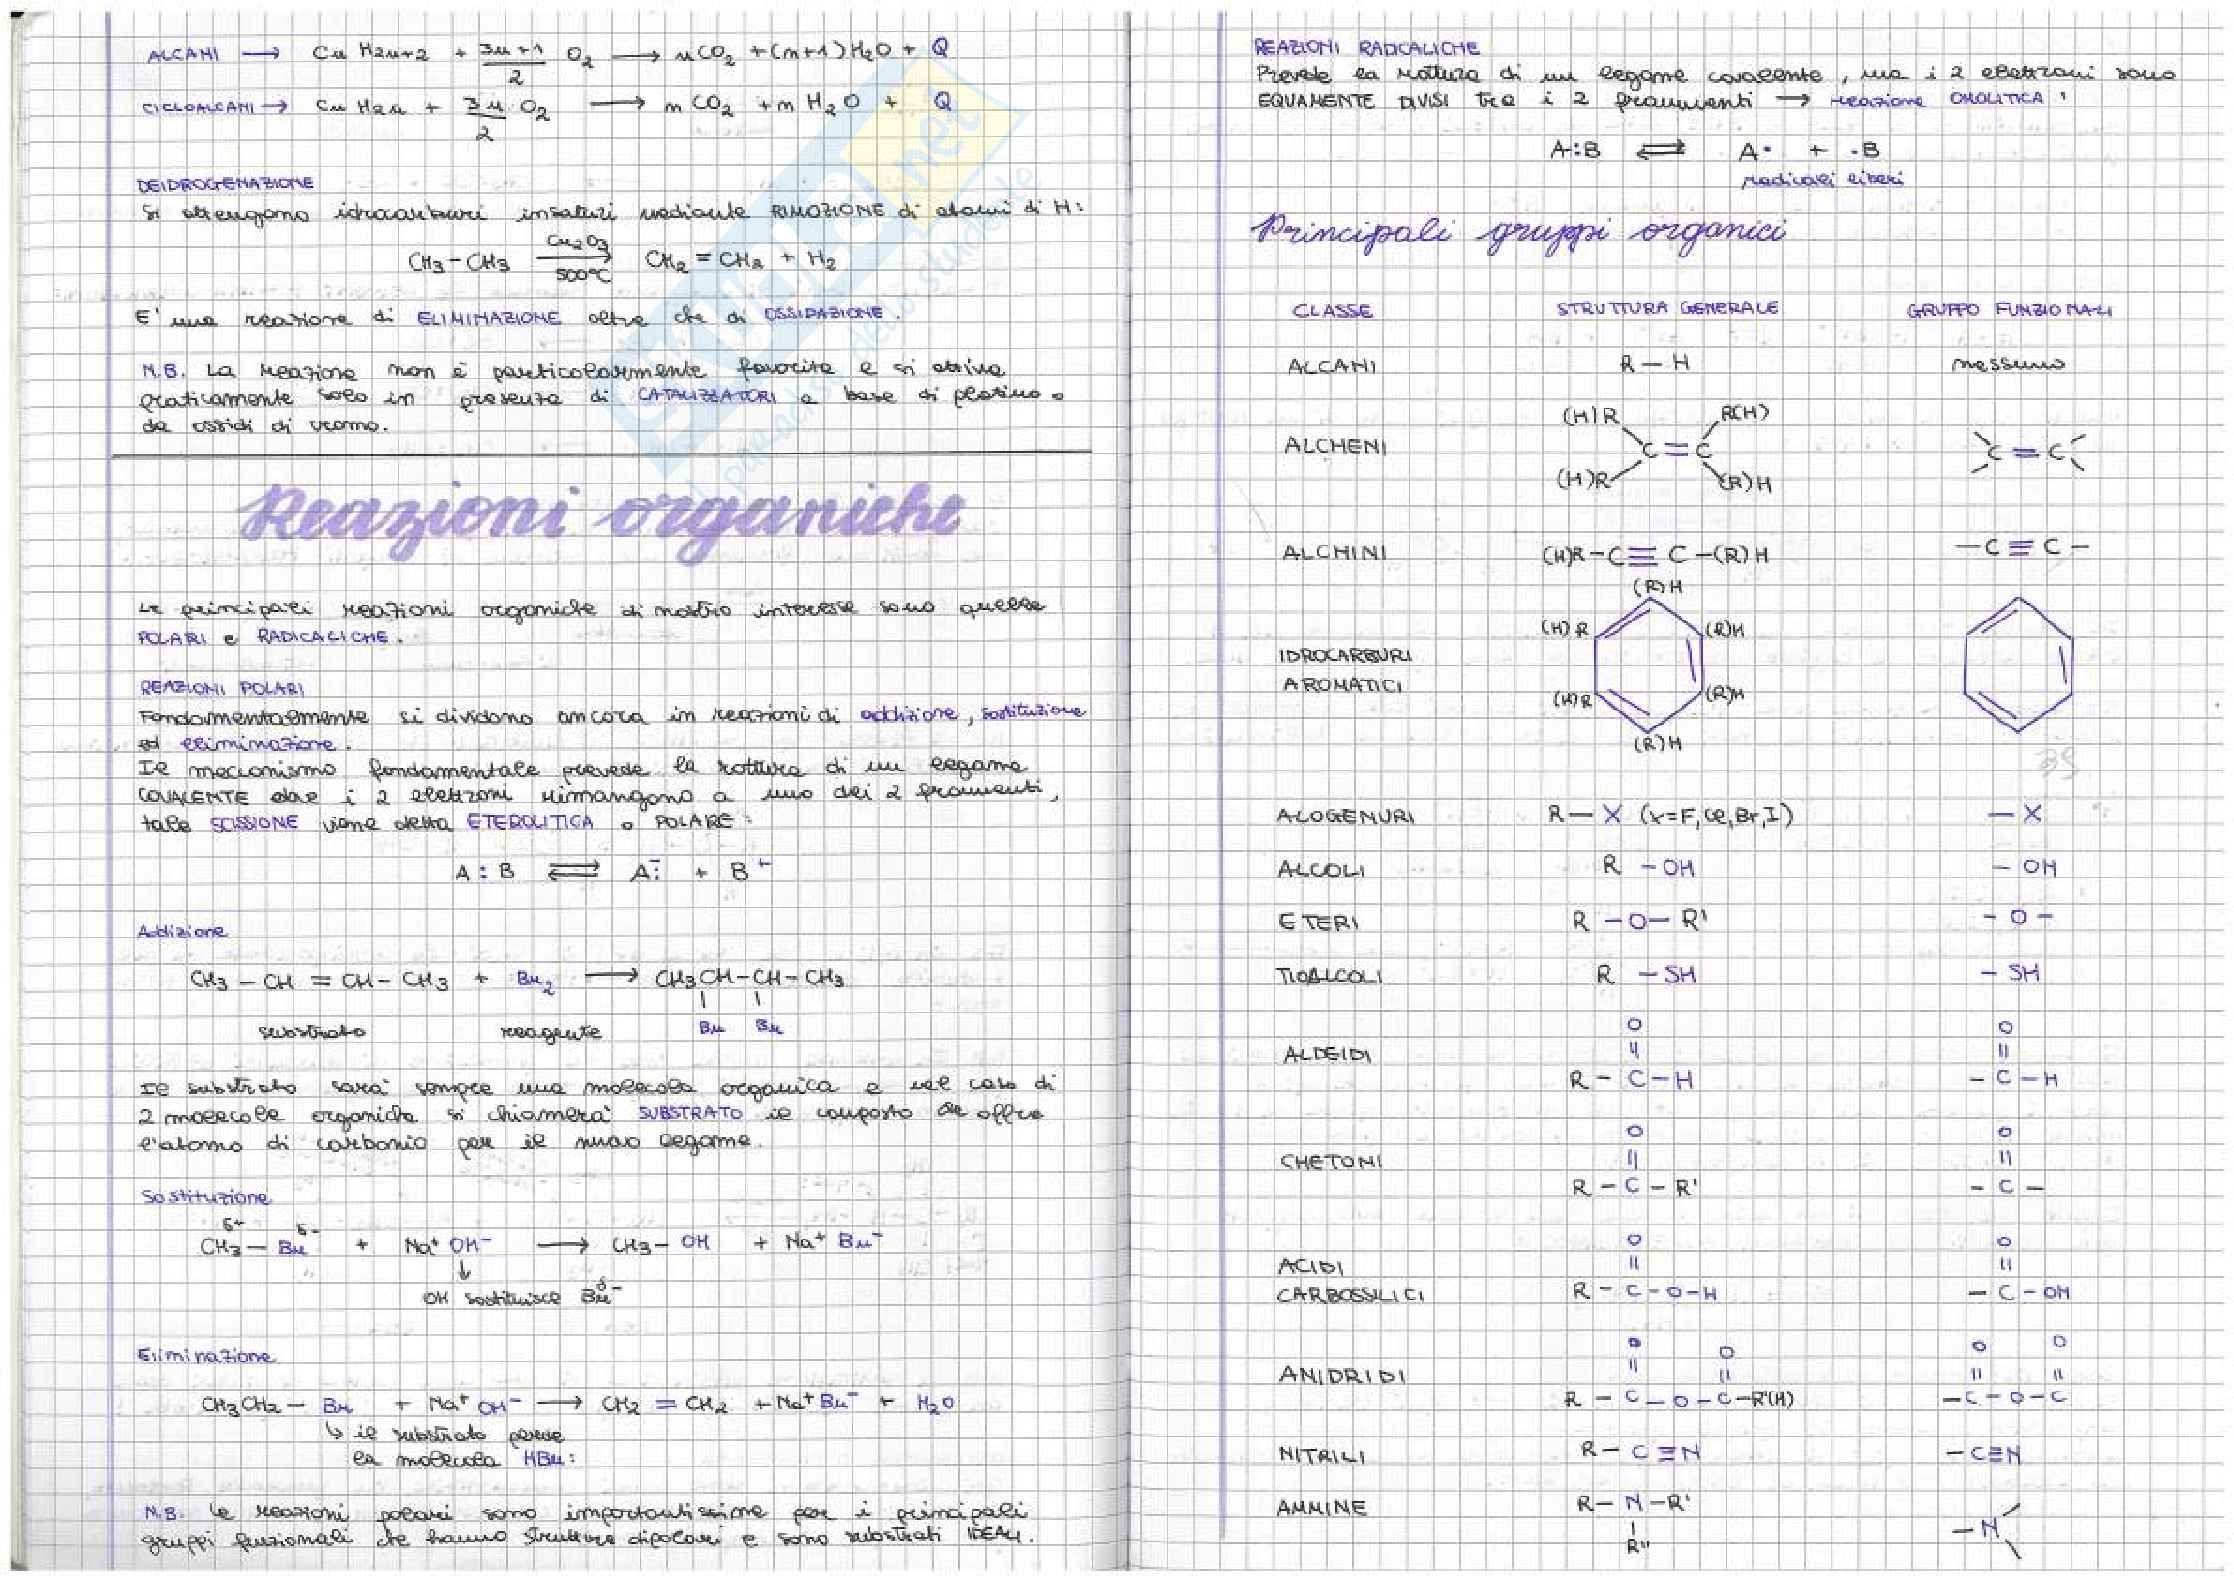 ALCANI → CnH2n+2 + 3n+1/2 O2 → nCO2 + (n+1)H2O + Q
CICLOALCANI → CnH2n + 3n/2 O2 → nCO2 + nH2O + Q
DEIDROGENAZIONE
Si ottengono idrocarburi insaturi mediante RIMOZIONE di atomi di H:
Cr2O3
CH3-CH3 → CH2=CH2 + H2
500°C
E' una reazione di ELIMINAZIONE oltre che di OSSIDAZIONE.
N.B. La reazione non è particolarmente favorita e si attiva
praticamente solo in presenza di CATALIZZATORI a base di platino o
da ossidi di cromo.
Reazioni organiche
Le principali reazioni organiche di nostro interesse sono quelle
POLARI e RADICALICHE.
REAZIONI POLARI
Fondamentalmente si dividono ancora in reazioni di addizione, sostituzione
ed eliminazione.
Il meccanismo fondamentale prevede la rottura di un legame
COVALENTE dove i 2 elettroni rimangono a uno dei 2 frammenti,
tale SCISSIONE viene detta ETEROLITICA o POLARE:
A:B ⇌ A:⁻ + B⁺
Addizione
CH3-CH=CH-CH3 + Br2 → CH3CH-CH-CH3
Br Br
substrato reagente
Il substrato sarà sempre una molecola organica e nel caso di
2 molecole organiche si chiamerà SUBSTRATO il composto che offre
l'atomo di carbonio per il nuovo legame.
Sostituzione
δ+ δ-
CH3-Br + Na⁺OH⁻ → CH3-OH + Na⁺Br⁻
↓
OH sostituisce Br δ-
Eliminazione
CH3CH2-Br + Na⁺OH⁻ → CH2=CH2 + Na⁺Br⁻ + H2O
↳ il substrato perde
la molecola HBr:
N.B. Le reazioni polari sono importantissime per i principali
gruppi funzionali che hanno strutture dipolari e sono substrati IDEALI.
REAZIONI RADICALICHE
Prevede la rottura di un legame covalente, ma i 2 elettroni sono
EQUAMENTE DIVISI tra i 2 frammenti → reazione OMOLITICA:
A:B ⇌ A• + •B
radicali liberi
Principali gruppi organici
CLASSE STRUTTURA GENERALE GRUPPO FUNZIONALI
ALCANI R-H nessuno
(H)R R(H)
ALCHENI C=C C=C
(H)R (R)H
ALCHINI (H)R-C≡C-(R)H -C≡C-
(R)H
(H)R (R)H
IDROCARBURI
AROMATICI
(H)R (R)H
(R)H
ALOGENURI R-X (X=F,Cl,Br,I) -X
ALCOLI R-OH -OH
ETERI R-O-R' -O-
TIOALCOLI R-SH -SH
O O
ALDEIDI
R-C-H -C-H
O O
CHETONI
R-C-R' -C-
O O
ACIDI
CARBOSSILICI R-C-O-H -C-OH
O O O O
ANIDRIDI
R-C-O-C-R'(H) -C-O-C
NITRILI R-C≡N -C≡N
AMMINE R-N-R' -N
R''